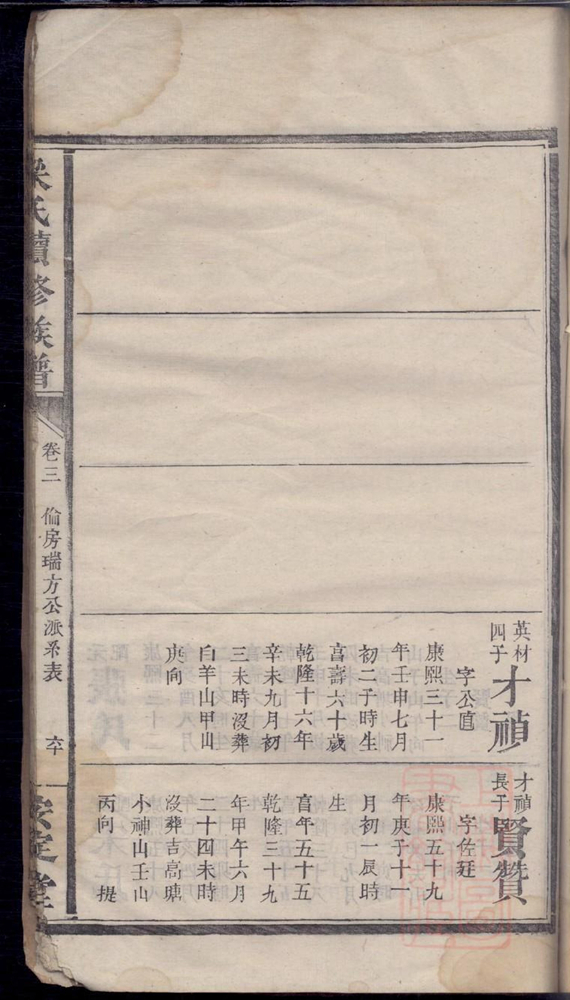 英材
四子
才禎
字公直
康熙三十一
年壬申七月
初二子時生
享壽六十歲
乾隆十六年
辛未九月初
三未時沒葬
白羊山甲山
庚向
才禎
長子
賢贊
字佐廷
康熙五十九
年庚子十一
月初一辰時
生
享年五十五
乾隆三十九
年甲午六月
二十四未時
沒葬吉高塘
小神山壬山
丙向 提
梁氏續修族譜
卷三
倫房瑞方公派系表
卒
安定堂